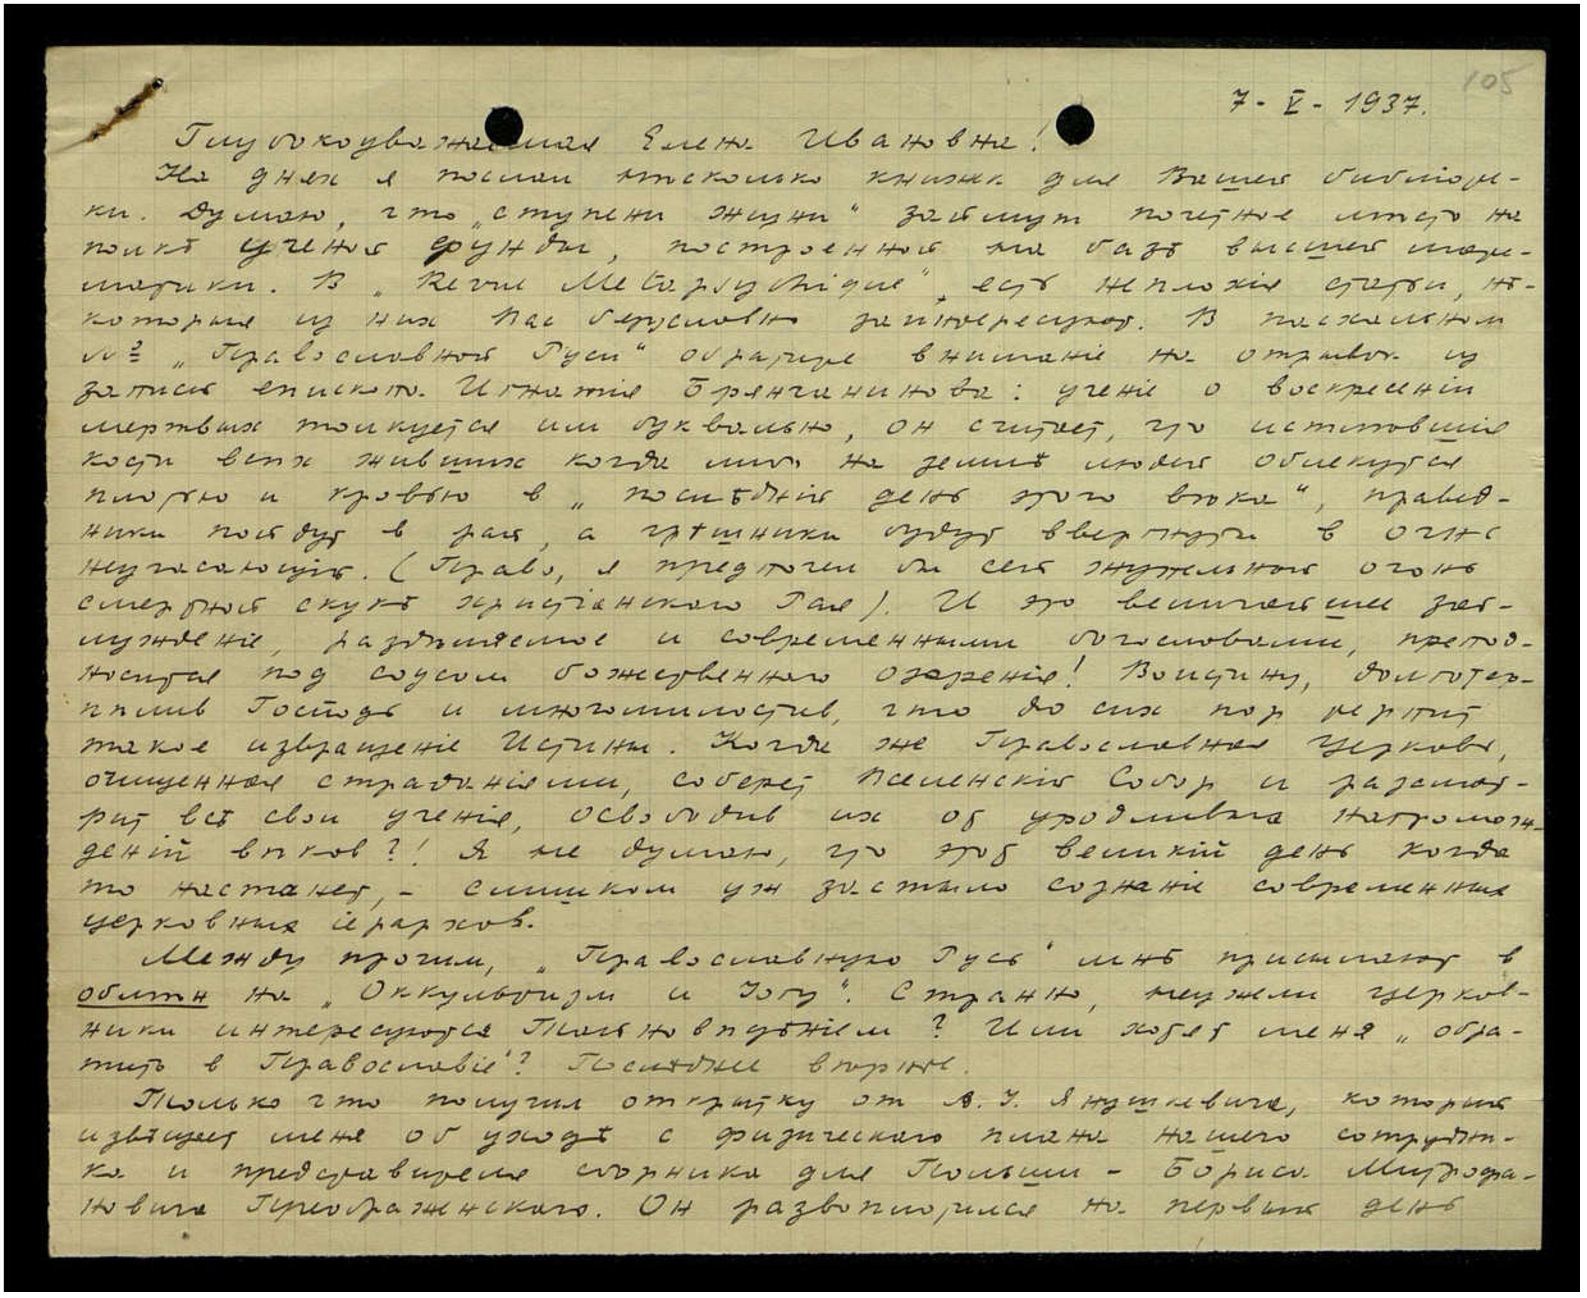 105
7 - V - 1937.
Глубокоуважаемая Елена Ивановна!
На днях я послал нѣсколько книжек для Вашей библіоте-
ки. Думаю, что „ступени жизни“ займут почетное мѣсто на
полкѣ ученой фунды, построенной на базѣ высшей мате-
матики. В „Revue Métapsychique“, есть неплохія статьи, нѣ-
которыя из них Вас безусловно заинтересуют. В пасхальном
№ „Православной Руси“ обратите вниманіе на отрывок из
записей епископа Игнатія Брянчанинова: ученіе о воскресеніи
мертвых толкуется им буквально, он считает, что истлѣвшія
кости всѣх живших когда либо на землѣ людей облекутся
плотью и кровью в „послѣдній день этого вѣка“, правед-
ники пойдут в рай, а грѣшники будут ввергнуты в огнь
неугасающій. (Право, я предпочел бы сей жупельный огонь
смертной скукѣ христіанского Рая). И это величайшее заб-
лужденіе, раздѣляемое и современными богословами, препод-
носится под соусом божественного озаренія! Воистину, долготер-
пѣлив Господь и многомилостив, что до сих пор терпит
такое извращеніе Истины. Когда же Православная Церковь,
очищенная страданіями, соберет Вселенскій Собор и разсмот-
рит всѣ свои ученія, освободив их от уродливых нагромож-
деній вѣков?! Я не думаю, что этот великій день когда
то настанет, - слишком уж застыло сознаніе современных
церковных іерархов.
Между прочим, „Православную Русь“ мнѣ присылают в
обмѣн на „Оккультизм и Іогу“. Странно, неужели церков-
ники интересуются Тайновѣдѣніем? Или хотят меня „обра-
тить в Православіе“? Послѣднее вѣрнѣе.
Только что получил открытку от А. І. Янушкевича, который
извѣщает меня об уходѣ с физического плана нашего сотрудни-
ка и представителя сборника для Польши - Бориса Митрофа-
новича Преображенского. Он развоплотился на первый день